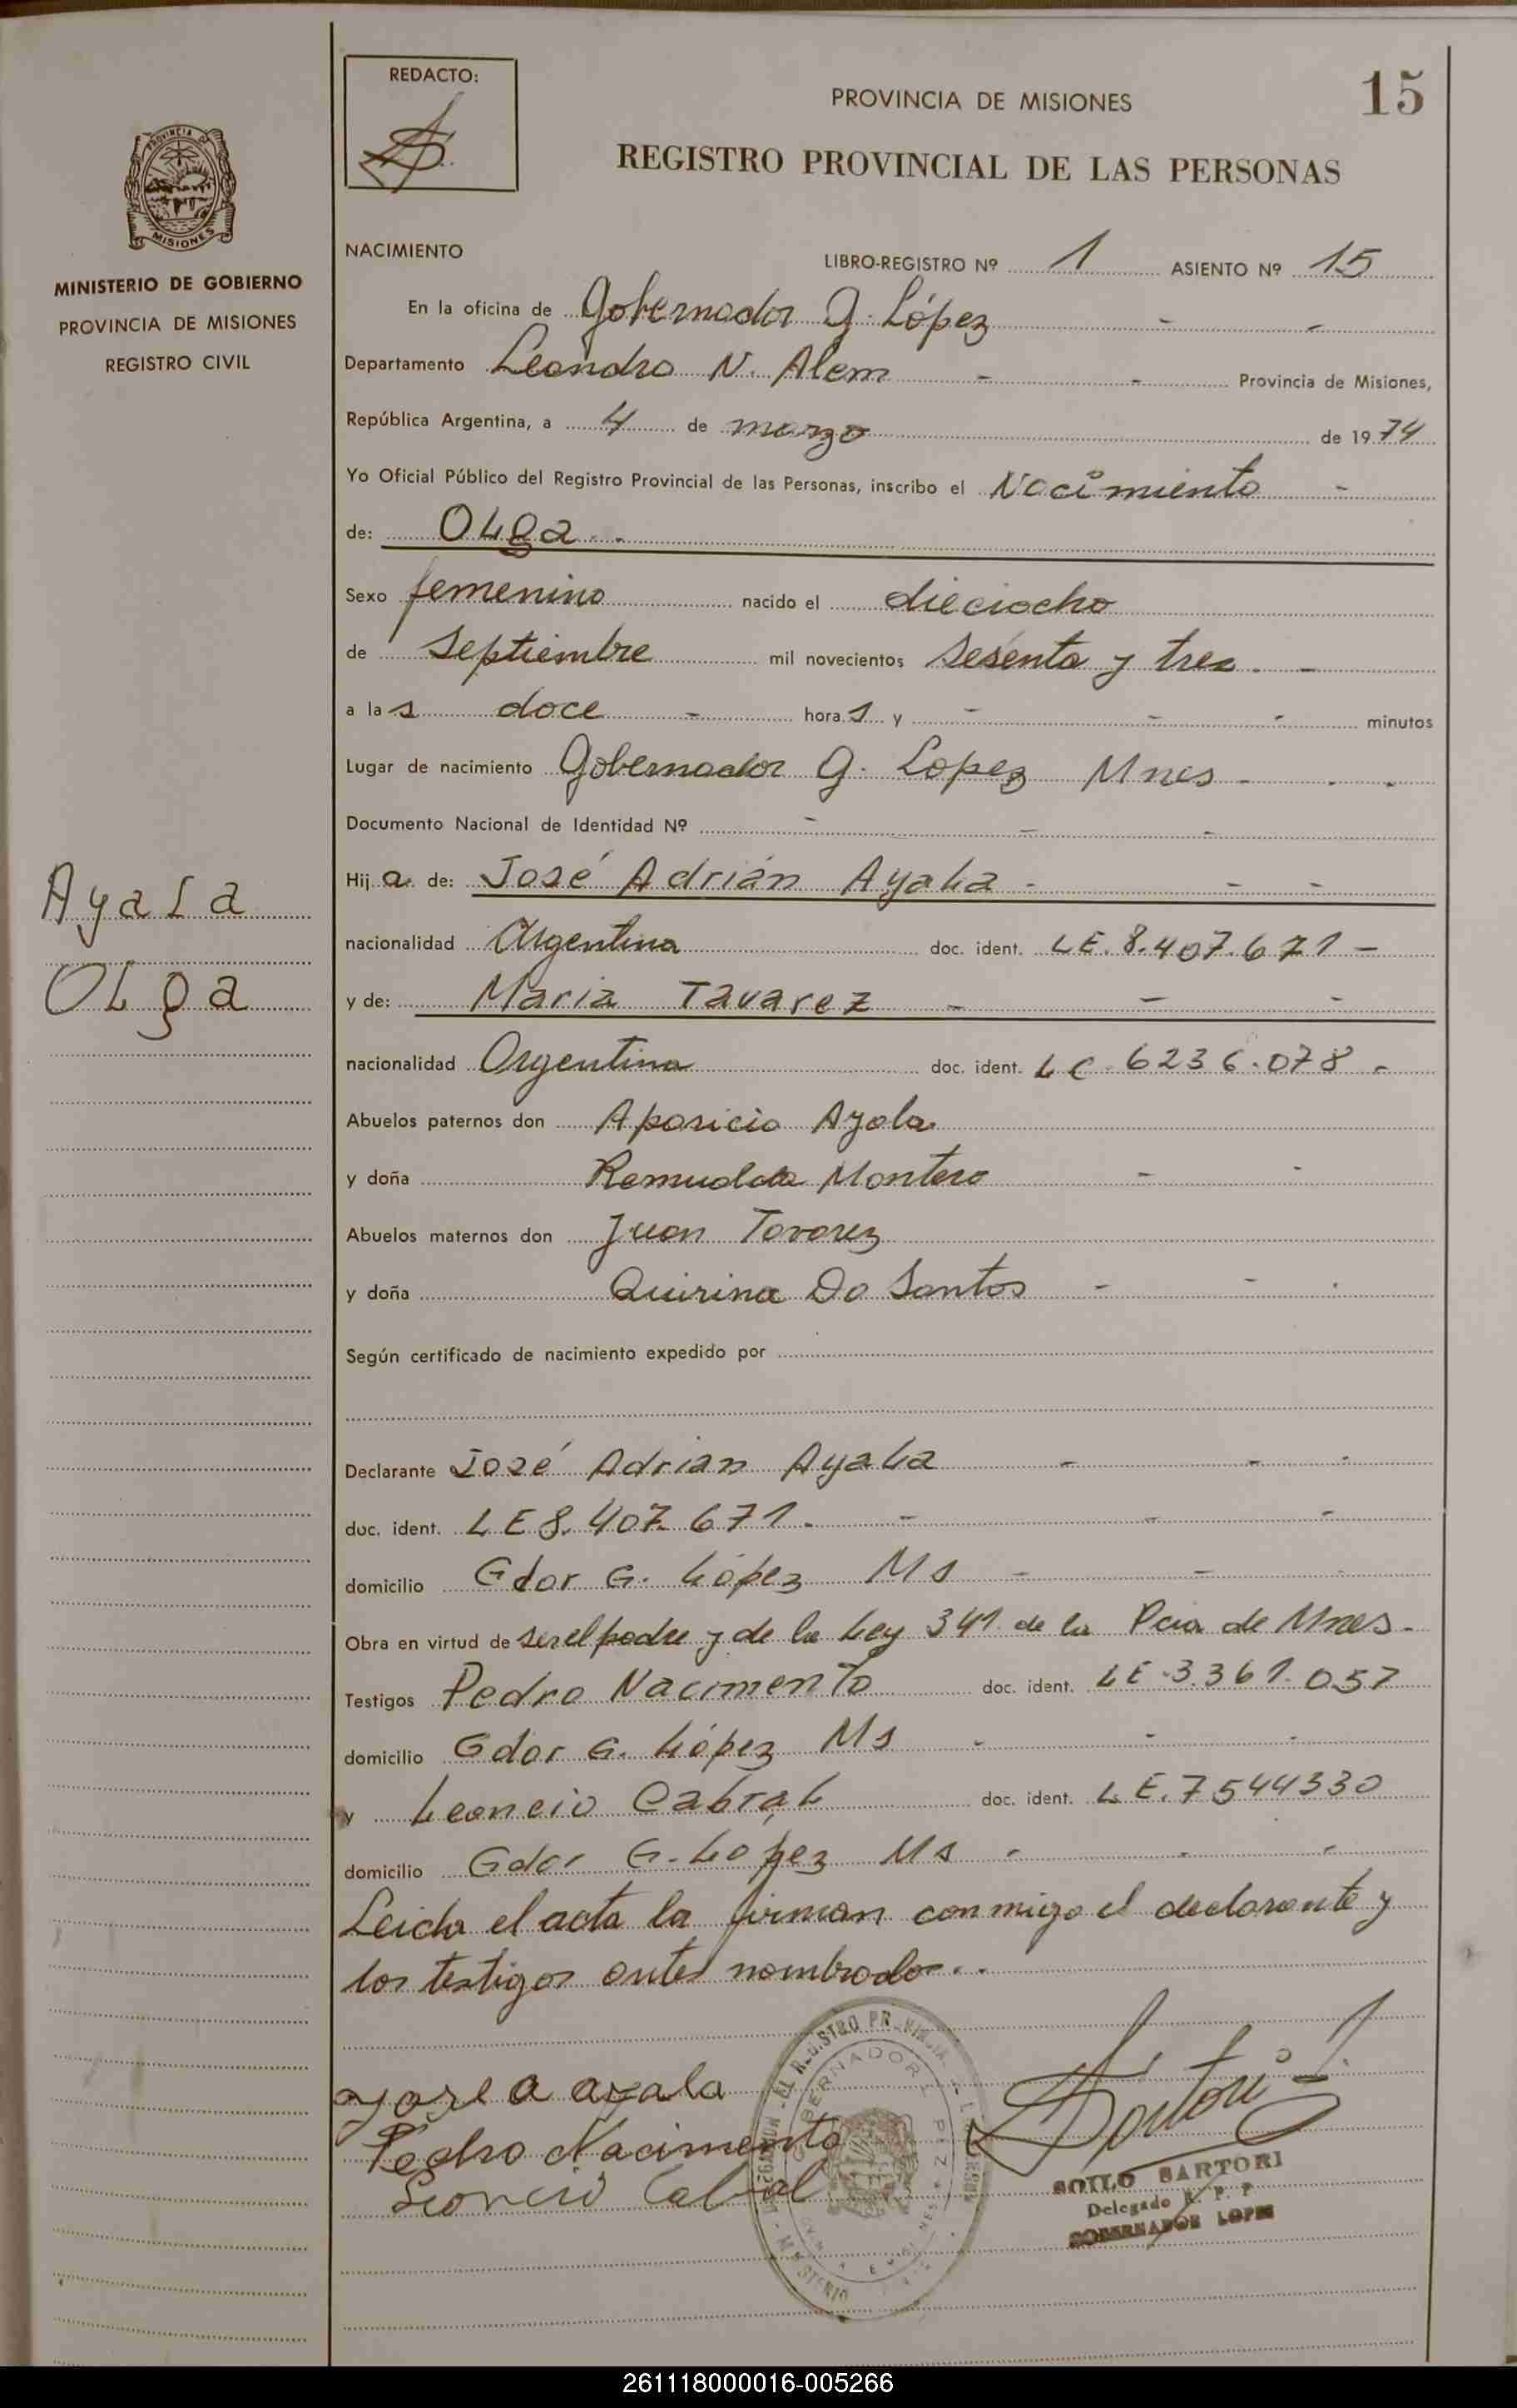 REDACTO:
PROVINCIA DE MISIONES
15
REGISTRO PROVINCIAL DE LAS PERSONAS
PROVINCIA
MISIONES
MINISTERIO DE GOBIERNO
PROVINCIA DE MISIONES
REGISTRO CIVIL
NACIMIENTO
LIBRO-REGISTRO Nº 1 ASIENTO Nº 15
En la oficina de Gobernador G. López - -
Departamento Leandro N. Alem - - Provincia de Misiones,
República Argentina, a 4 de marzo de 1974
Yo Oficial Público del Registro Provincial de las Personas, inscribo el Nacimiento -
de: OLga. -
Sexo femenino nacido el dieciocho
de Septiembre mil novecientos sesenta y tres. -
a las doce - horas y - - - minutos
Lugar de nacimiento Gobernador G. Lopez Mnes - - -
Documento Nacional de Identidad Nº - - -
Hija de: José Adrián AyaLa - - -
nacionalidad Argentina doc. ident. LE. 8.407.671 -
y de: Maria Tavarez - - -
nacionalidad Argentina doc. ident. LC. 6236.078 -
Abuelos paternos don Aparicio Ayala
y doña Romualda Montero - -
Abuelos maternos don Juan Tavarez
y doña Quirina Do Santos - - -
Según certificado de nacimiento expedido por
Declarante José Adrian AyaLa - - -
doc. ident. LE 8.407.671. - - -
domicilio Gdor G. López Ms - - -
Obra en virtud de ser el padre y de la Ley 341 de la Pcia de Mnes -
Testigos Pedro Nacimento doc. ident. LE 3.361.057
domicilio Gdor G. López Ms - - -
y Leoncio CabraL doc. ident. LE. 7544330
domicilio Gdor G. Lopez Ms - - -
Leida el acta la firman conmigo el declarante y
los testigos antes nombrado. -
Ayala
OLga
jose a ayala
Pedro Nacimento
Leoncio Cabral
Sartori
SOILO SARTORI
Delegado R. P. P
GOBERNADOR LOPEZ
261118000016-005266